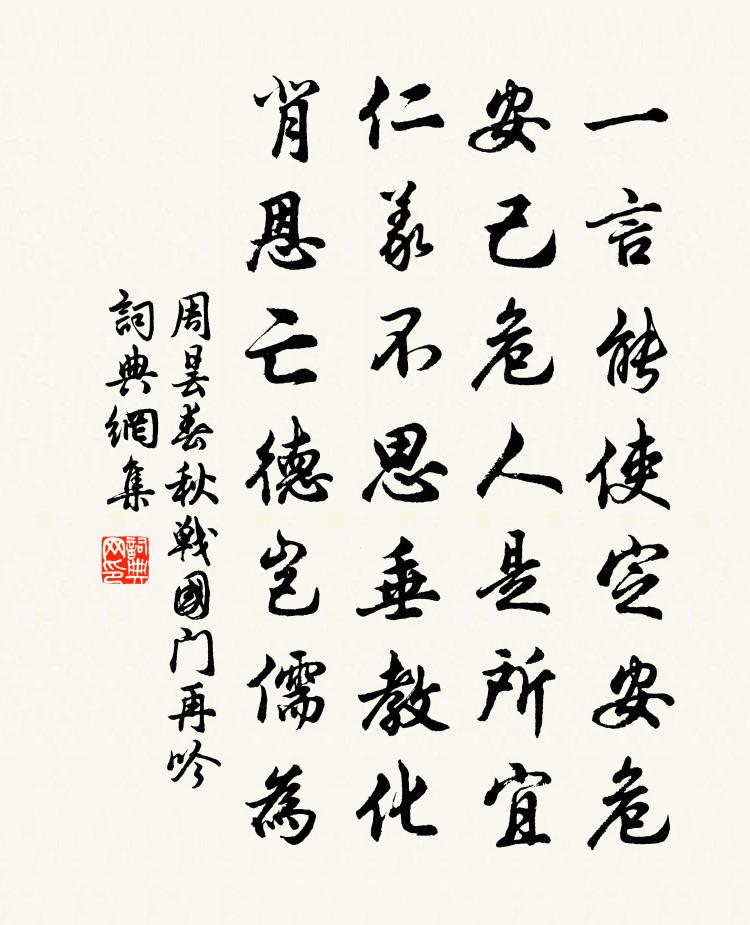 一言能使定安危
安己危人是所宜
仁義不思垂教化
背恩亡德豈儒為
周曇春秋戰國門再吟
詞典網集
詞典
网印